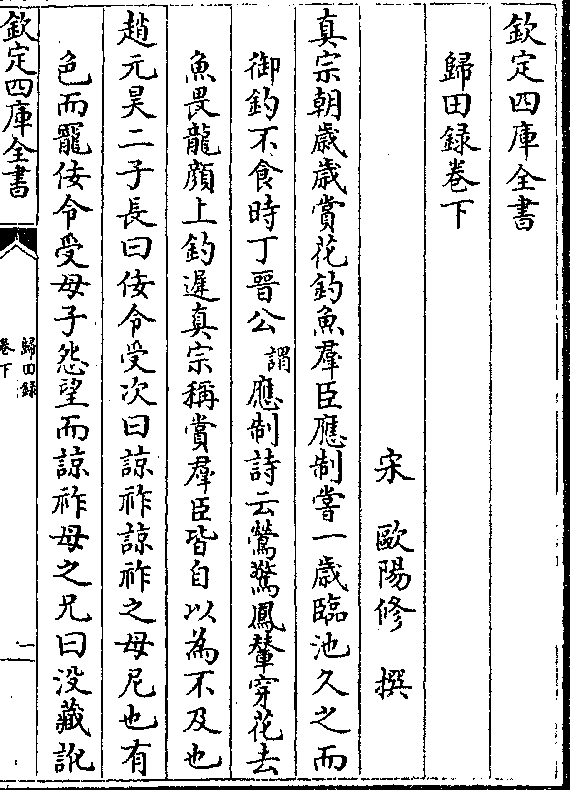 欽定四庫全書
歸田録巻下
宋 歐陽修 撰
真宗朝歳歳賞花釣魚羣臣應制嘗一歳臨池久之而
御釣不食時丁晉公謂應制詩云鶯驚鳳輦穿花去
魚畏龍顔上釣遲真宗稱賞羣臣皆自以為不及也
趙元昊二子長曰佞令受次曰諒祚諒祚之母尼也有
色而寵佞令受母子怨望而諒祚母之兄曰没藏訛
欽定四庫全書
歸田録
巻下
一